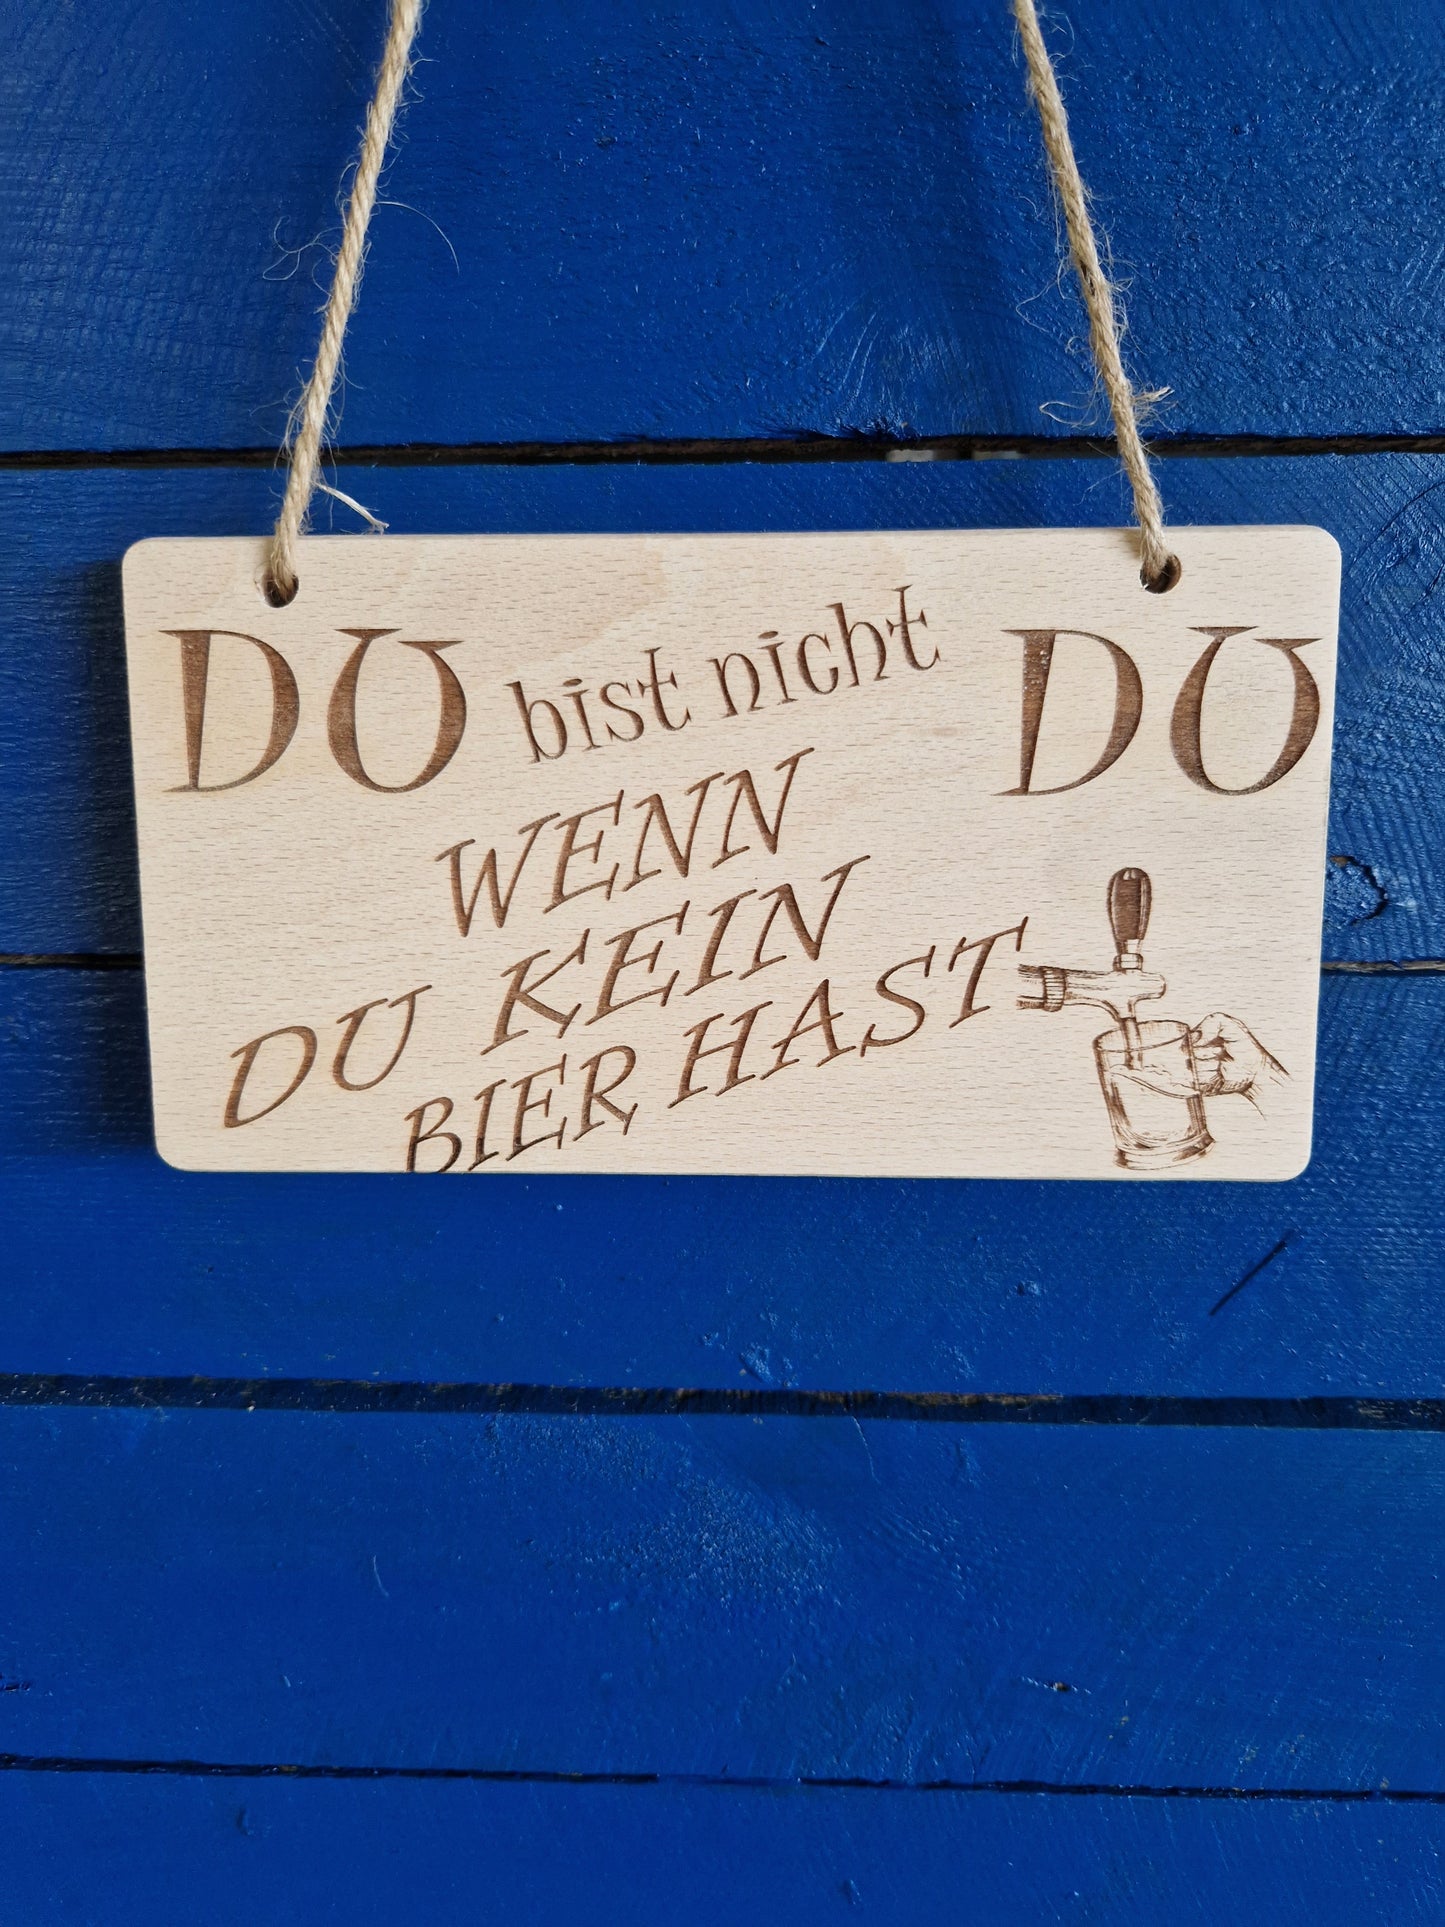 DU bist nicht DU
WENN
DU KEIN
BIER HAST